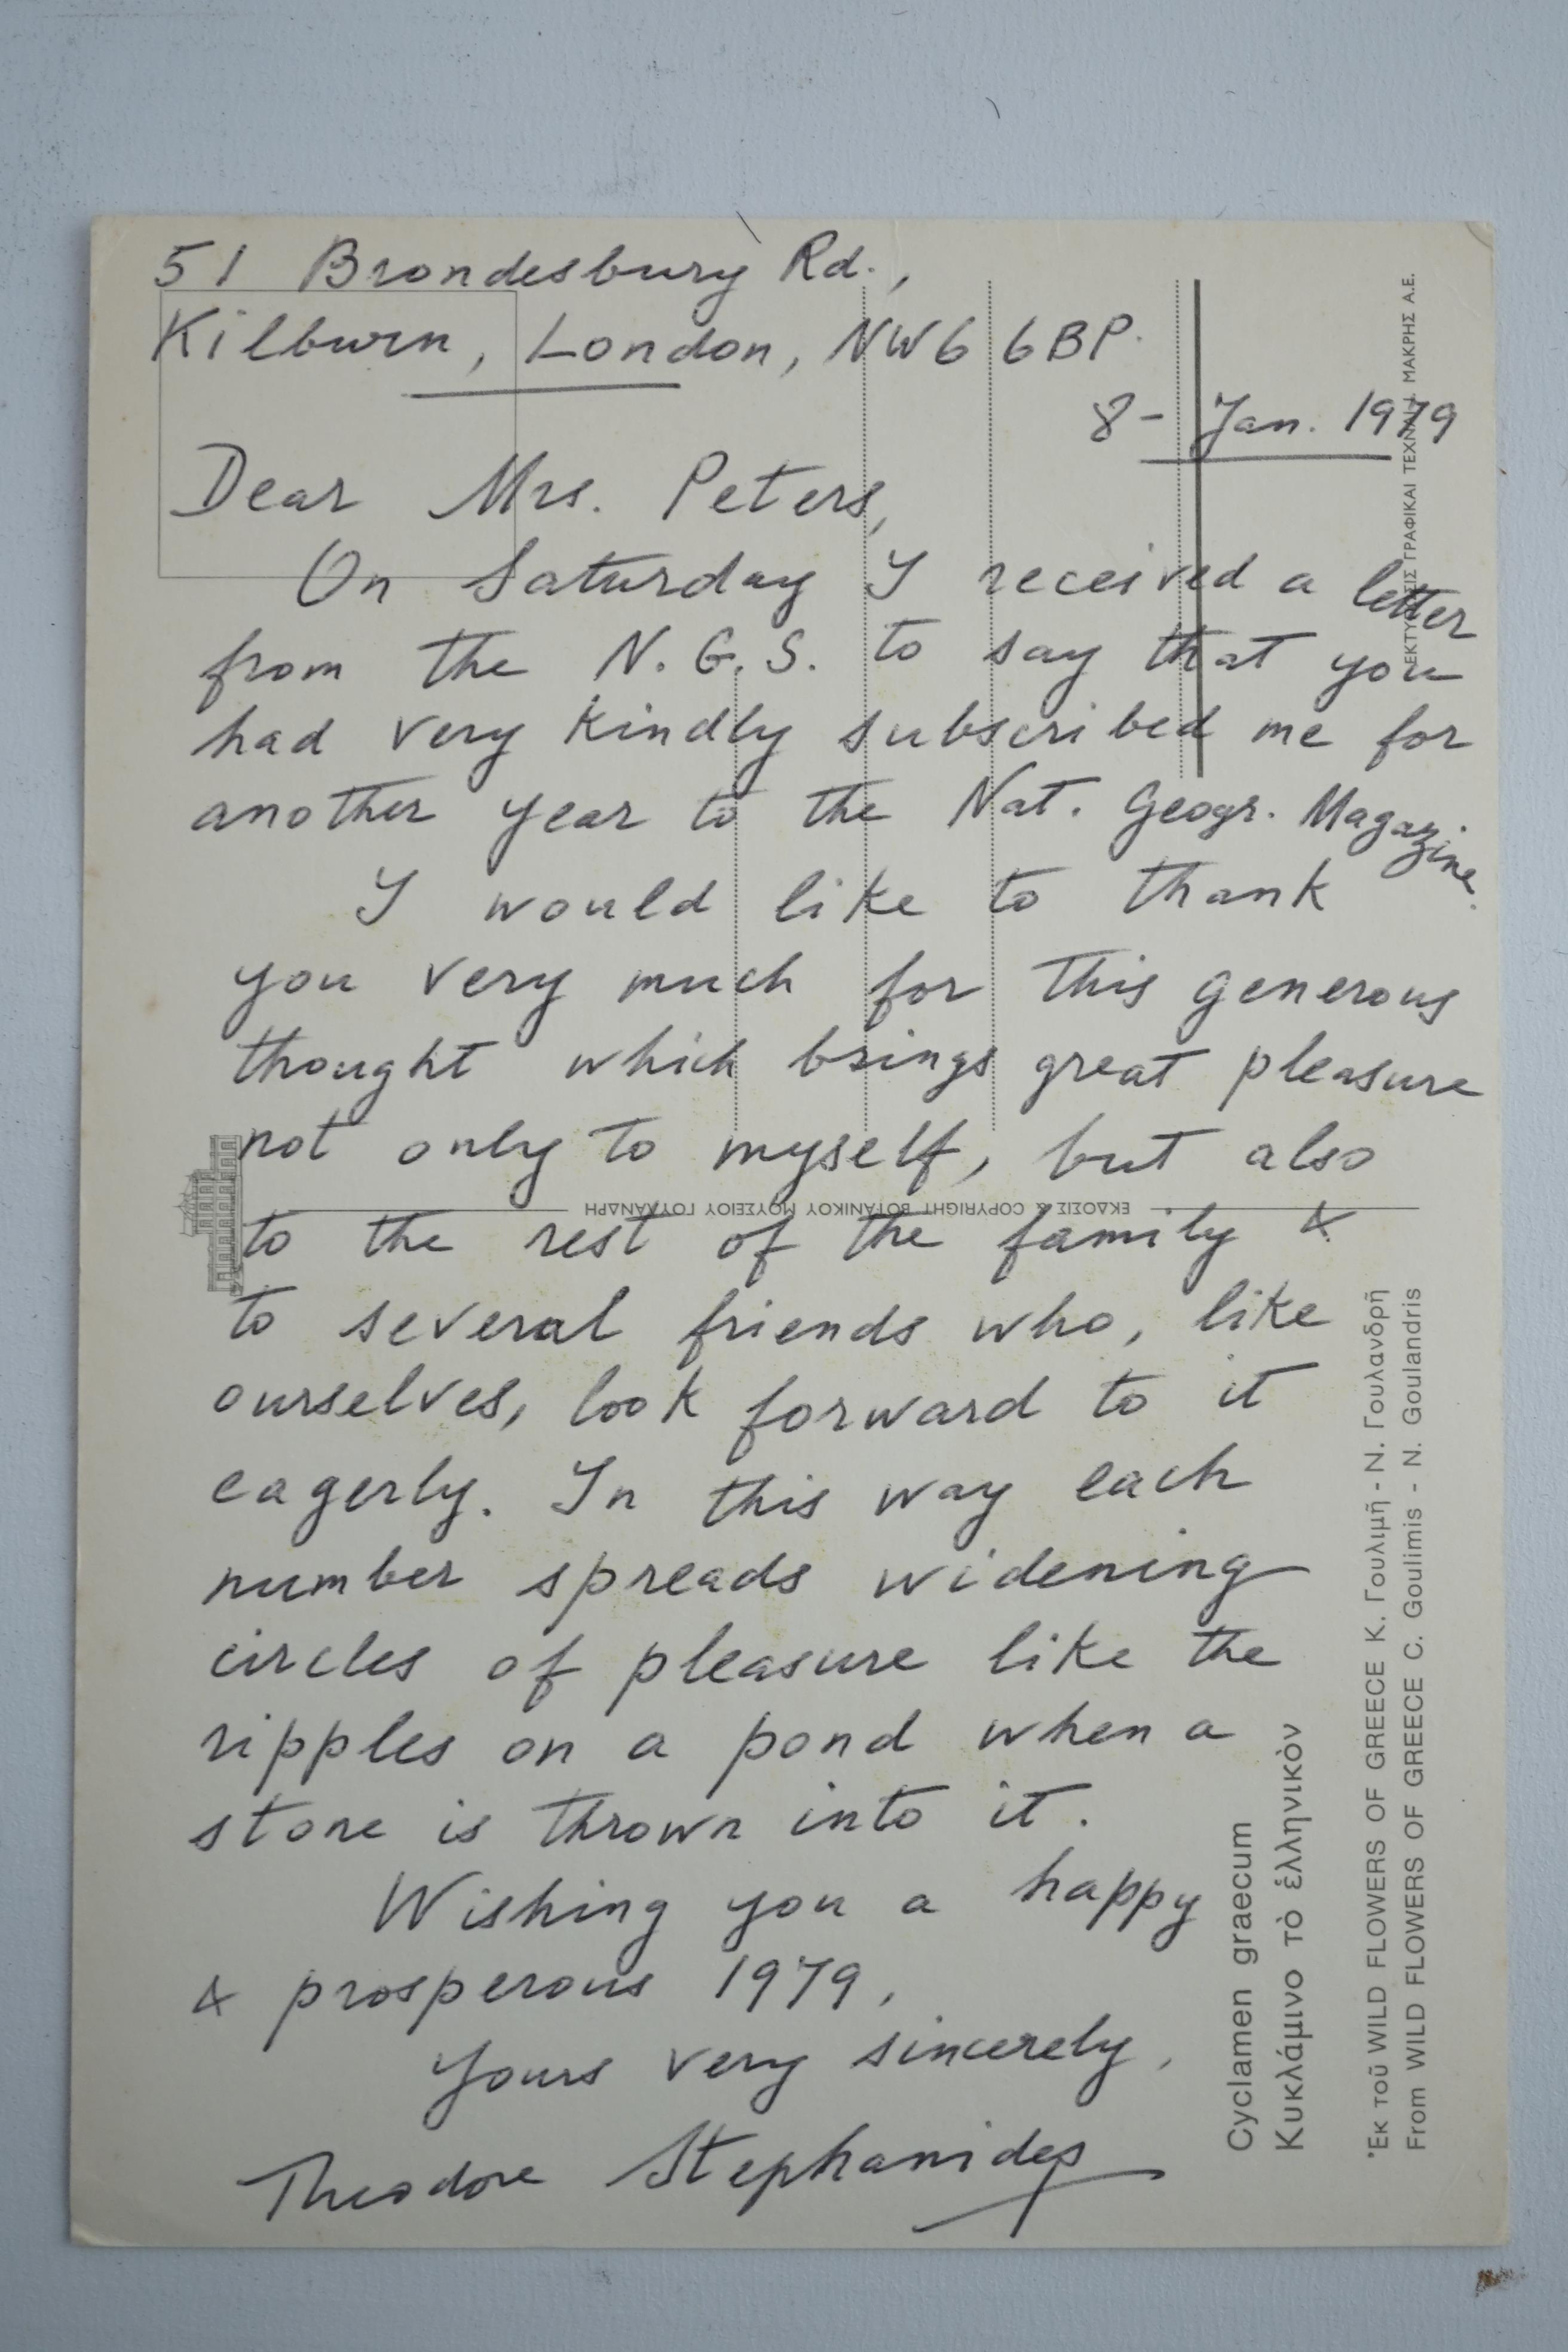 51 Brondesbury Rd.,
Kilburn, London, NW6 6BP.
8- Jan. 1979
Dear Mrs. Peters,
On Saturday I received a letter
from the N.G.S. to say that you
had very kindly subscribed me for
another year to the Nat. Geogr. Magazine.
I would like to thank
you very much for this generous
thought which brings great pleasure
not only to myself, but also
to the rest of the family &
to several friends who, like
ourselves, look forward to it
eagerly. In this way each
number spreads widening
circles of pleasure like the
ripples on a pond when a
stone is thrown into it.
Wishing you a happy
& prosperous 1979,
Yours very sincerely,
Theodore Stephanides
ΕΚΔΟΣΙΣ & COPYRIGHT ΒΟΤΑΝΙΚΟΥ ΜΟΥΣΕΙΟΥ ΓΟΥΛΑΝΔΡΗ
Cyclamen graecum
Κυκλάμινο τὸ ἑλληνικὸν
Ἐκ τοῦ WILD FLOWERS OF GREECE Κ. Γουλιμῆ - Ν. Γουλανδρῆ
From WILD FLOWERS OF GREECE C. Goulimis - N. Goulandris
ΕΚΤΥΠΩΣΙΣ ΓΡΑΦΙΚΑΙ ΤΕΧΝΑΙ Ι. ΜΑΚΡΗΣ Α.Ε.